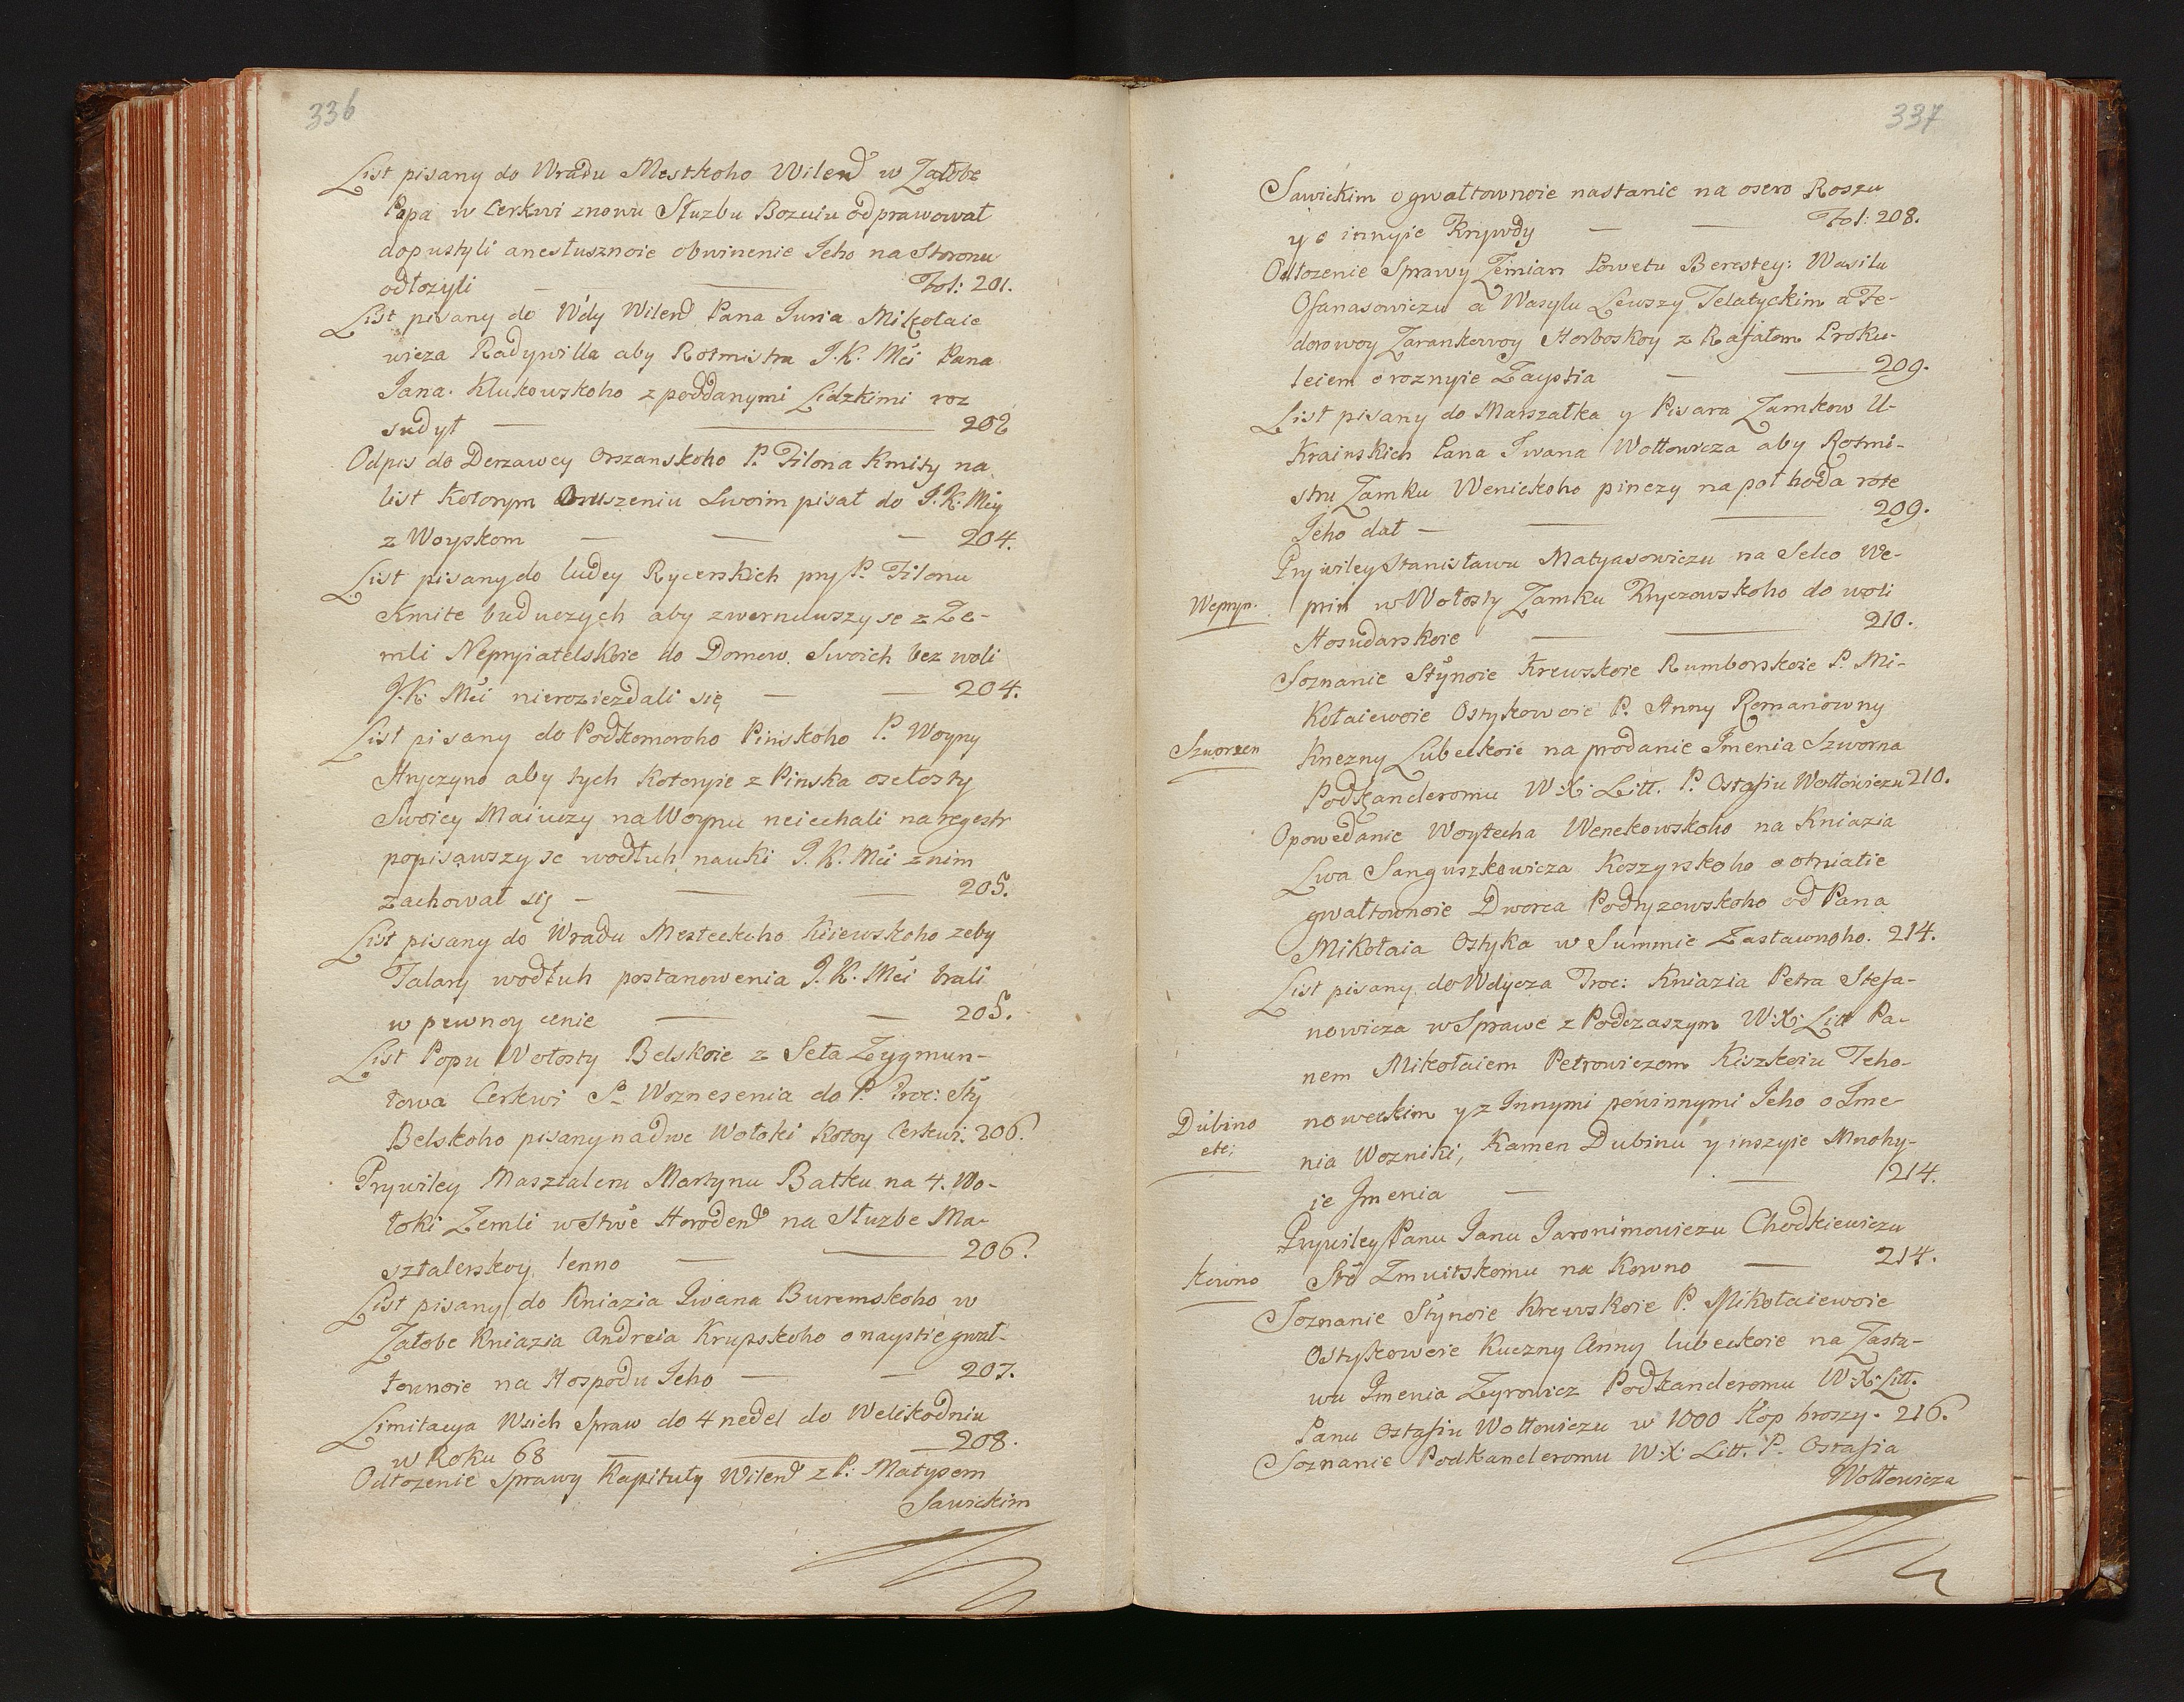 336
List pisany do Wradu Mestkoho Wilend w Załobe
Popa w Cerkwi znowu Słuzbu Bozuiu odprawował
dopustyli anesłusznoie obwinenie Jeho na Storonu
odłozyli — — Fol: 201.
List pisany do Wdy Wilend Pana Juria Mikołaie
wicza Radywilla aby Rotmistra J.K. Mći Pana
Jana Klukowskoho z poddanymi Lidzkimi roz
sudył — — 202
Odpis do Derzawcy Orszanskoho P. Filona Kmity na
list kotorym Oruszeniu Swoim pisał do J.K. Mćy
z Woyskom — — — 204.
List pisany do ludey Rycerskich pry P. Filonu
Kmite buduczych aby zwernuwszy se z Ze-
mli Nepryiatelskoie do Domow Swoich bez woli
J.K. Mći nierozieżdali się — — 204.
List pisany do Podkomoroho Pinskoho P. Woyny
Hryczyno aby tych kotoryie z Pinska osełosty
Swoiey Maiuczy na Woynu neiechali na regestr
popisawszy se wodłuh nauki J.K. Mći z nim
zachował się — — — 205.
List pisany do Wradu Mesteckoho Kiiewskoho zeby
Talary wodłuh postanowenia J.K. Mći brali
w pewnoy cenie — — 205.
List Popu Wołosty Belskoie z Seła Zygmun-
towa Cerkwi S. Woznesenia do P. Troc: Sty
Belskoho pisany na dwe Wołoki kotoy Cerkwi. 206.
Prywiley Masztaleru Martynu Batku na 4. Wo-
łoki Zemli w Stwe Horodend na Słuzbe Ma-
sztalerskoy lenno — — 206.
List pisany do Kniazia Iwana Buremskoho w
Załobe Kniazia Andreia Krupskoho o naystie gwał-
townoie na Hospodu Jeho — — 207.
Limitacya Wsich Spraw do 4 nedel do Welikodniu
w Roku 68 — — — 208.
Odłozenie Sprawy Kapituły Wilend z P: Matysem
Sawickim
337
Sawickim o gwałtownoie nastanie na osero Roszu
y o innyie Krywdy — — Fol: 208.
Odłozenie Sprawy Zemian Powetu Berestey: Wasilu
Ofanasowiczu a Wasylu Lewszy Telatyckim a Fe-
dorowoy Zarankowoy Horboskoy z Rafałom Proku-
leiem o roznyie Zaystia — — 209.
List pisany do Marszałka y Pisara Zamkow U-
Krainskich Pana Iwana Wołłowicza aby Rotmi-
stru Zamku Wenickoho pinezy na poł hoda rote
Jeho dał — — — 209.
Prywiley Stanisławu Matyasowiczu na Selco We-
Wepryn. prin w Wołosty Zamku Kryczowskoho do woli
Hosudarskoie — — 210.
Soznanie Stynoie Krewskoie Rumborskoie P. Mi-
kołaiewoie Ostykowoie P. Anny Romanowny
Szworzen Knezny Lubeckoie na prodanie Imenia Szworna
Podkancleromu W.X. Litt. P. Ostafiu Wołłowiczu 210.
Opowedanie Woytecha Wenckowskoho na Kniazia
Lwa Sanguszkowicza Koszyrskoho o otniatie
gwałtownoie Dworca Podryzowskoho od Pana
Mikołaia Ostyka w Summie Zastawnoho. 214.
List pisany do Wdycza Troc: Kniazia Petra Stefa-
nowicza w Sprawe z Podczaszym W.X. Litt Pa-
nem Mikołaiem Petrowiczom Kiszkoiu Teho-
Dubino noweckim y z Innymi pewinnymi Jeho o Ime-
etc; nia Wozniki, Kamen Dubinu y inszyie Mnohy-
ie Imenia — — 214.
Prywiley Panu Janu Jaronimowiczu Chodkiewiczu
Kowno Stê Zmuitskomu na Kowno — 214.
Soznanie Stynoie Krewskoie P. Mikołaiewoie
Ostykowoie Kuczny Anny Lubeckoie na Zasta-
wu Imenia Zyrowicz Podkancleromu W.X. Litt.
Panu Ostafiu Wołłowiczu w 1000 kop hroszy. 216.
Soznanie Podkancleromu W.X. Litt. P. Ostafia
Wołłowicza